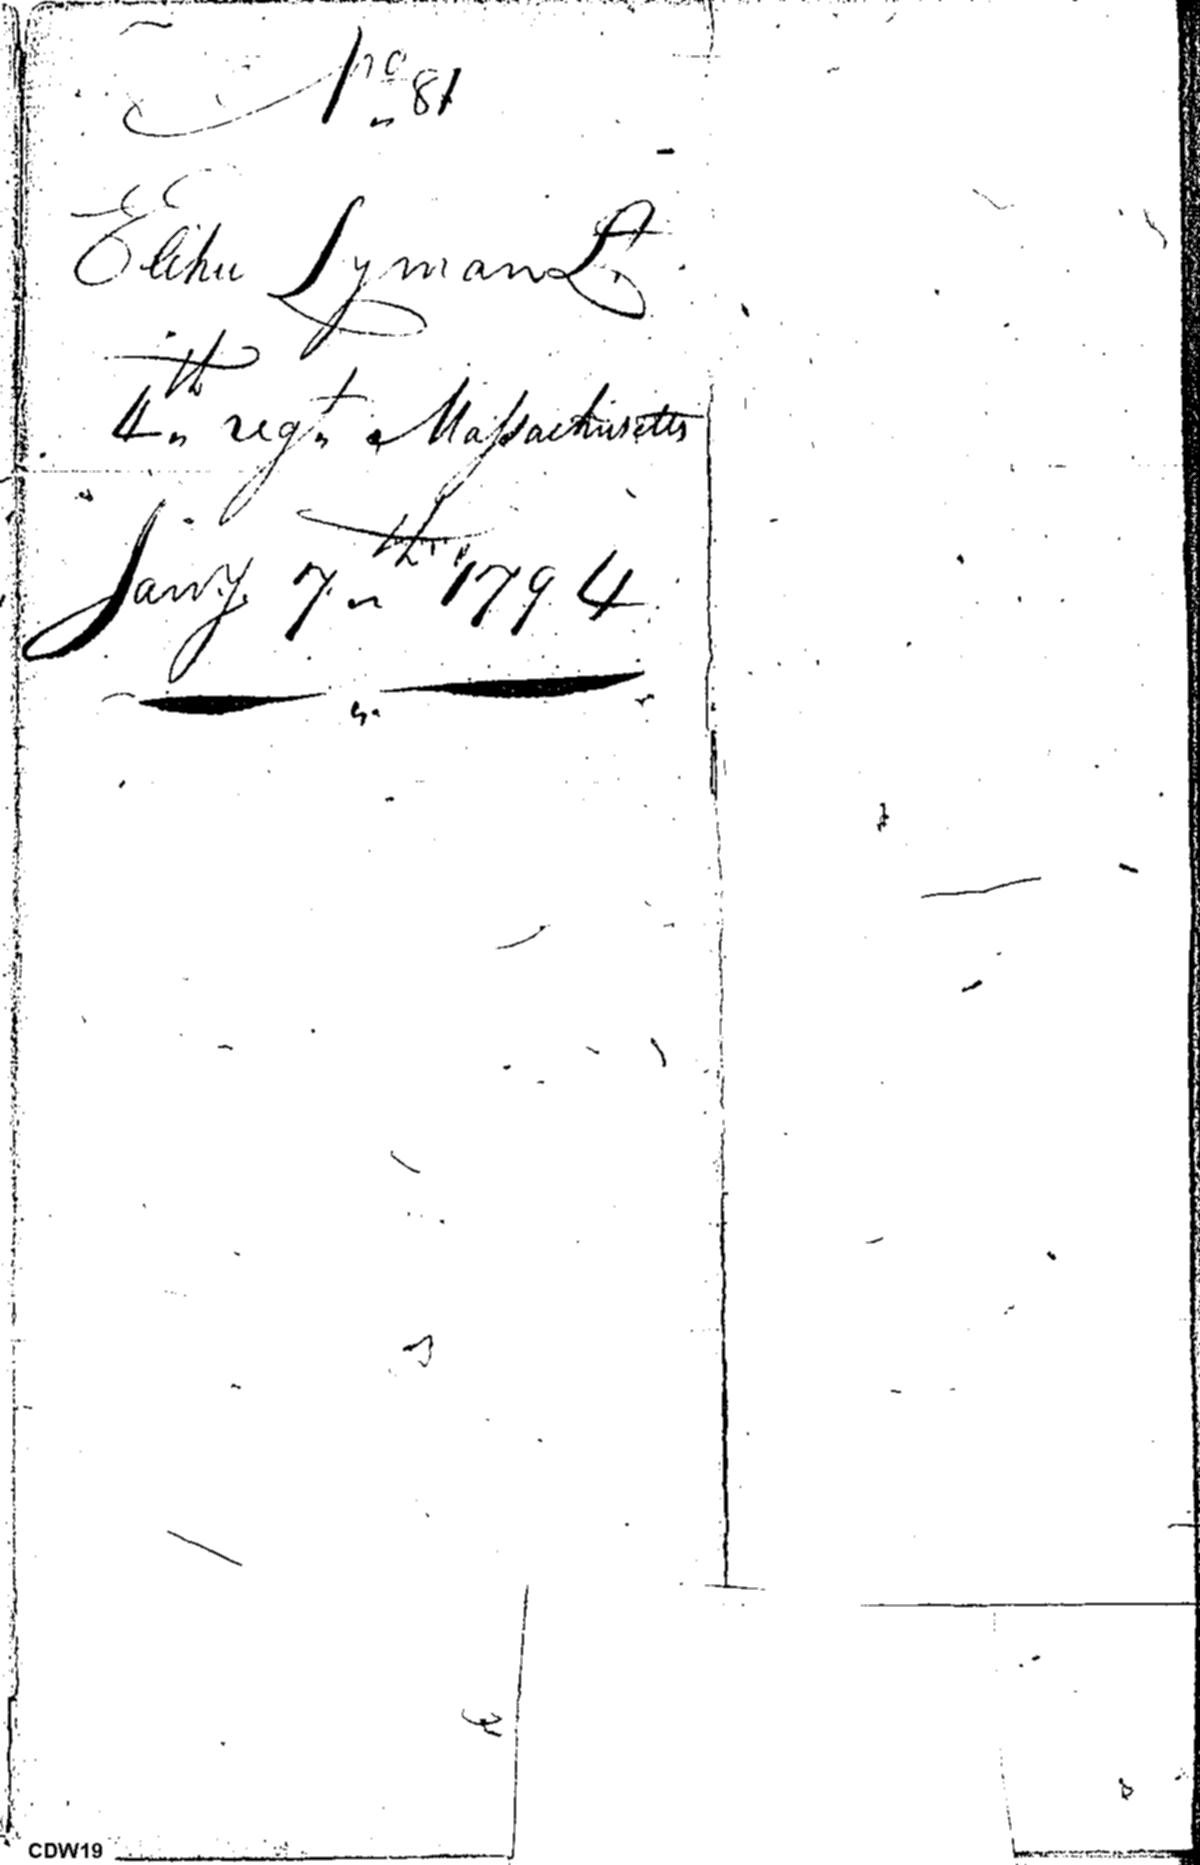 No 81
Elihu Lyman Lt
4th regt Massachusetts
Jany 7th 1794
CDW19